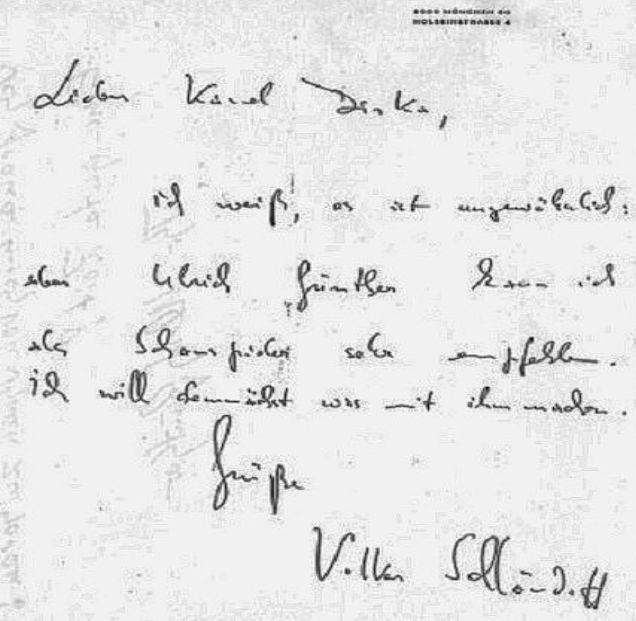 8000 MÜNCHEN 40
Lieber Karel Dirka,
ich weiß, es ist ungewöhnlich:
aber Ulrich Günther kann ich
als Schauspieler sehr empfehlen.
Ich will demnächst was mit ihm machen.
Grüße
Volker Schlöndorff